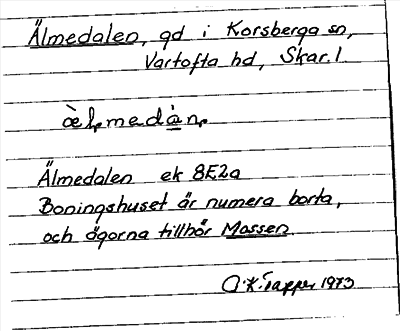 Älmedalen, gd i Korsberga sn,
Vartofta hd, Skar. l
Älmedalen ek 8E2a
Boningshuset är numera borta,
och ägorna tillhör Mossen.
1973